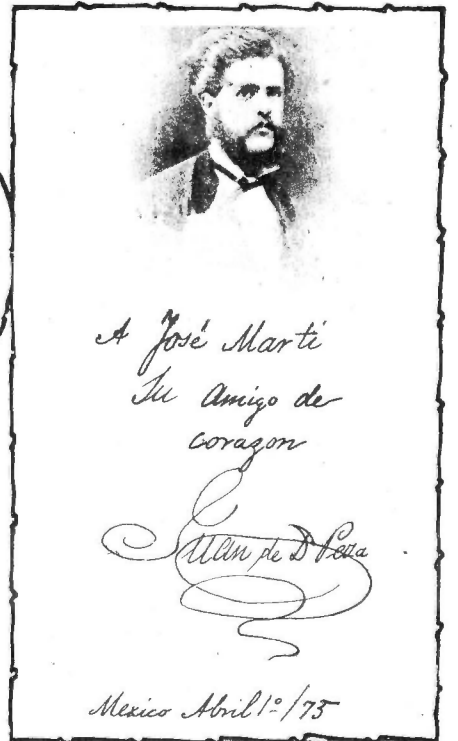 A José Martí
Su Amigo de
corazon
Juan de D Peza
Mexico Abril 1º/75